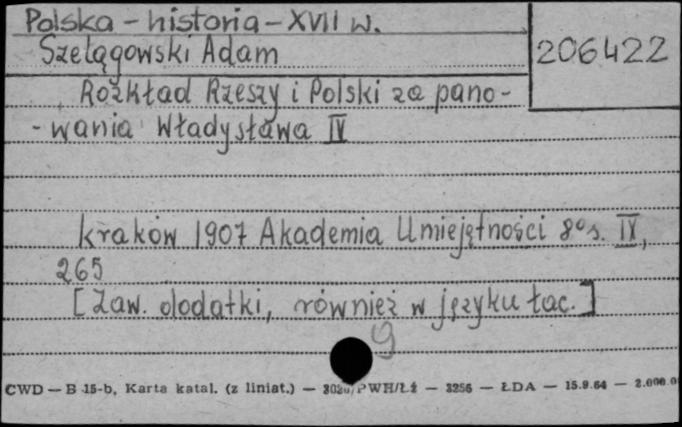 Polska - historia - XVII w.
Szelągowski Adam
206422
Rozkład Rzeszy i Polski za pano-
- wania Władysława IV
Kraków 1907 Akademia Umiejętności 8° s. IX,
265
[Zaw. dodatki, również w języku łac.]
9
CWD — B 15-b, Karta katal. (z liniat.) — PWH/Łż — 3256 — ŁDA — 15.9.64 — 2.000.0